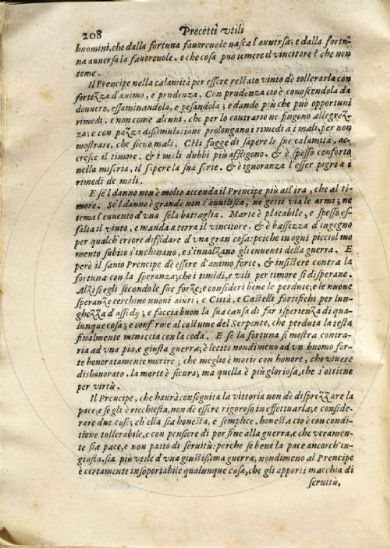 208 Precetti vtili
huomini, che dalla fortuna fauoreuole nasca l'auuersa; e dalla fortu-
na auuersa la fauoreuole. e che cosa può temere il vincitore? che non
teme.
Il Prencipe nella calamità per essere restato vinto dè tollerarla con
fortezza d'animo, e prudenza. Con prudenza ciò è conoscendola da
douuero, essaminandola, e pesandola; e dando più che può opportuni
rimedi. e non come alcuni, che per lo contrario ne fingono allegrez-
za; e con pazza dissimulatione prolongano i rimedi a i mali, per non
mostrare, che sieno mali. Chi fugge di sapere le sue calamità, ac-
cresce il timore. & i mali dubbi più affliggono. & è spesso conforto
nella miseria, il sapere la sua sorte. & è ignoranza l'esser pigro a i
rimedi de mali.
E se'l danno non è molto accenda il Prencipe più all'ira, che al ti-
more. Se'l danno è grande non s'auuilisca, ne getti via le armi; ne
tema l'euento d'vna sola battaglia. Marte è placabile, e spesso es-
salta il vinto, e manda a terra il vincitore. & è bassezza d'ingegno
per qualch'errore diffidare d'vna gran cosa: poiche in ogni picciol mo-
mento subito s'inchinano, e s'inalzano gli euenti della guerra. E
però il sauio Prencipe dè essere d'animo forte, & insistere contra la
fortuna con la speranza; che i timidi, e vili per timore si disperano.
Alzisi egli secondo le sue forze; e consideri bene le perdute; e le nuoue
speranze cerchino nuoui aiuti; e Città, e Castelli fortifichi per lun-
ghezza d'assedij; e faccia buon la sua causa di far isperienza di qua-
lunque cosa; e conforme al costume del Serpente, che perduta la testa
finalmente minaccia con la coda. E se la fortuna si mostra contra-
ria ad vna pia, e giusta guerra; è lecito nondimeno ad vn huomo for-
te honoratamente morire; che meglio è morir con honore, che viuere
dishonorato. la morte è sicura; ma quella è più gloriosa, che s'ottiene
per virtù.
Il Prencipe, che haurà conseguita la vittoria non dè disprezzare la
pace; e se gli è richiesta, non dè essere rigoroso in effettuarla; e conside-
rare due cose; ch'ella sia honesta, e semplice. honesta ciò è con condi-
tione tollerabile, e con pensiere di por fine alla guerra, e che veramen-
te sia pace, e non patto di seruitù: perche se bene la pace ancorch'in-
giusta, sia più vtile d'vna giustissima guerra; nondimeno al Prencipe
è certamente insoportabile qualunque cosa, che gli apporti macchia di
seruitù,